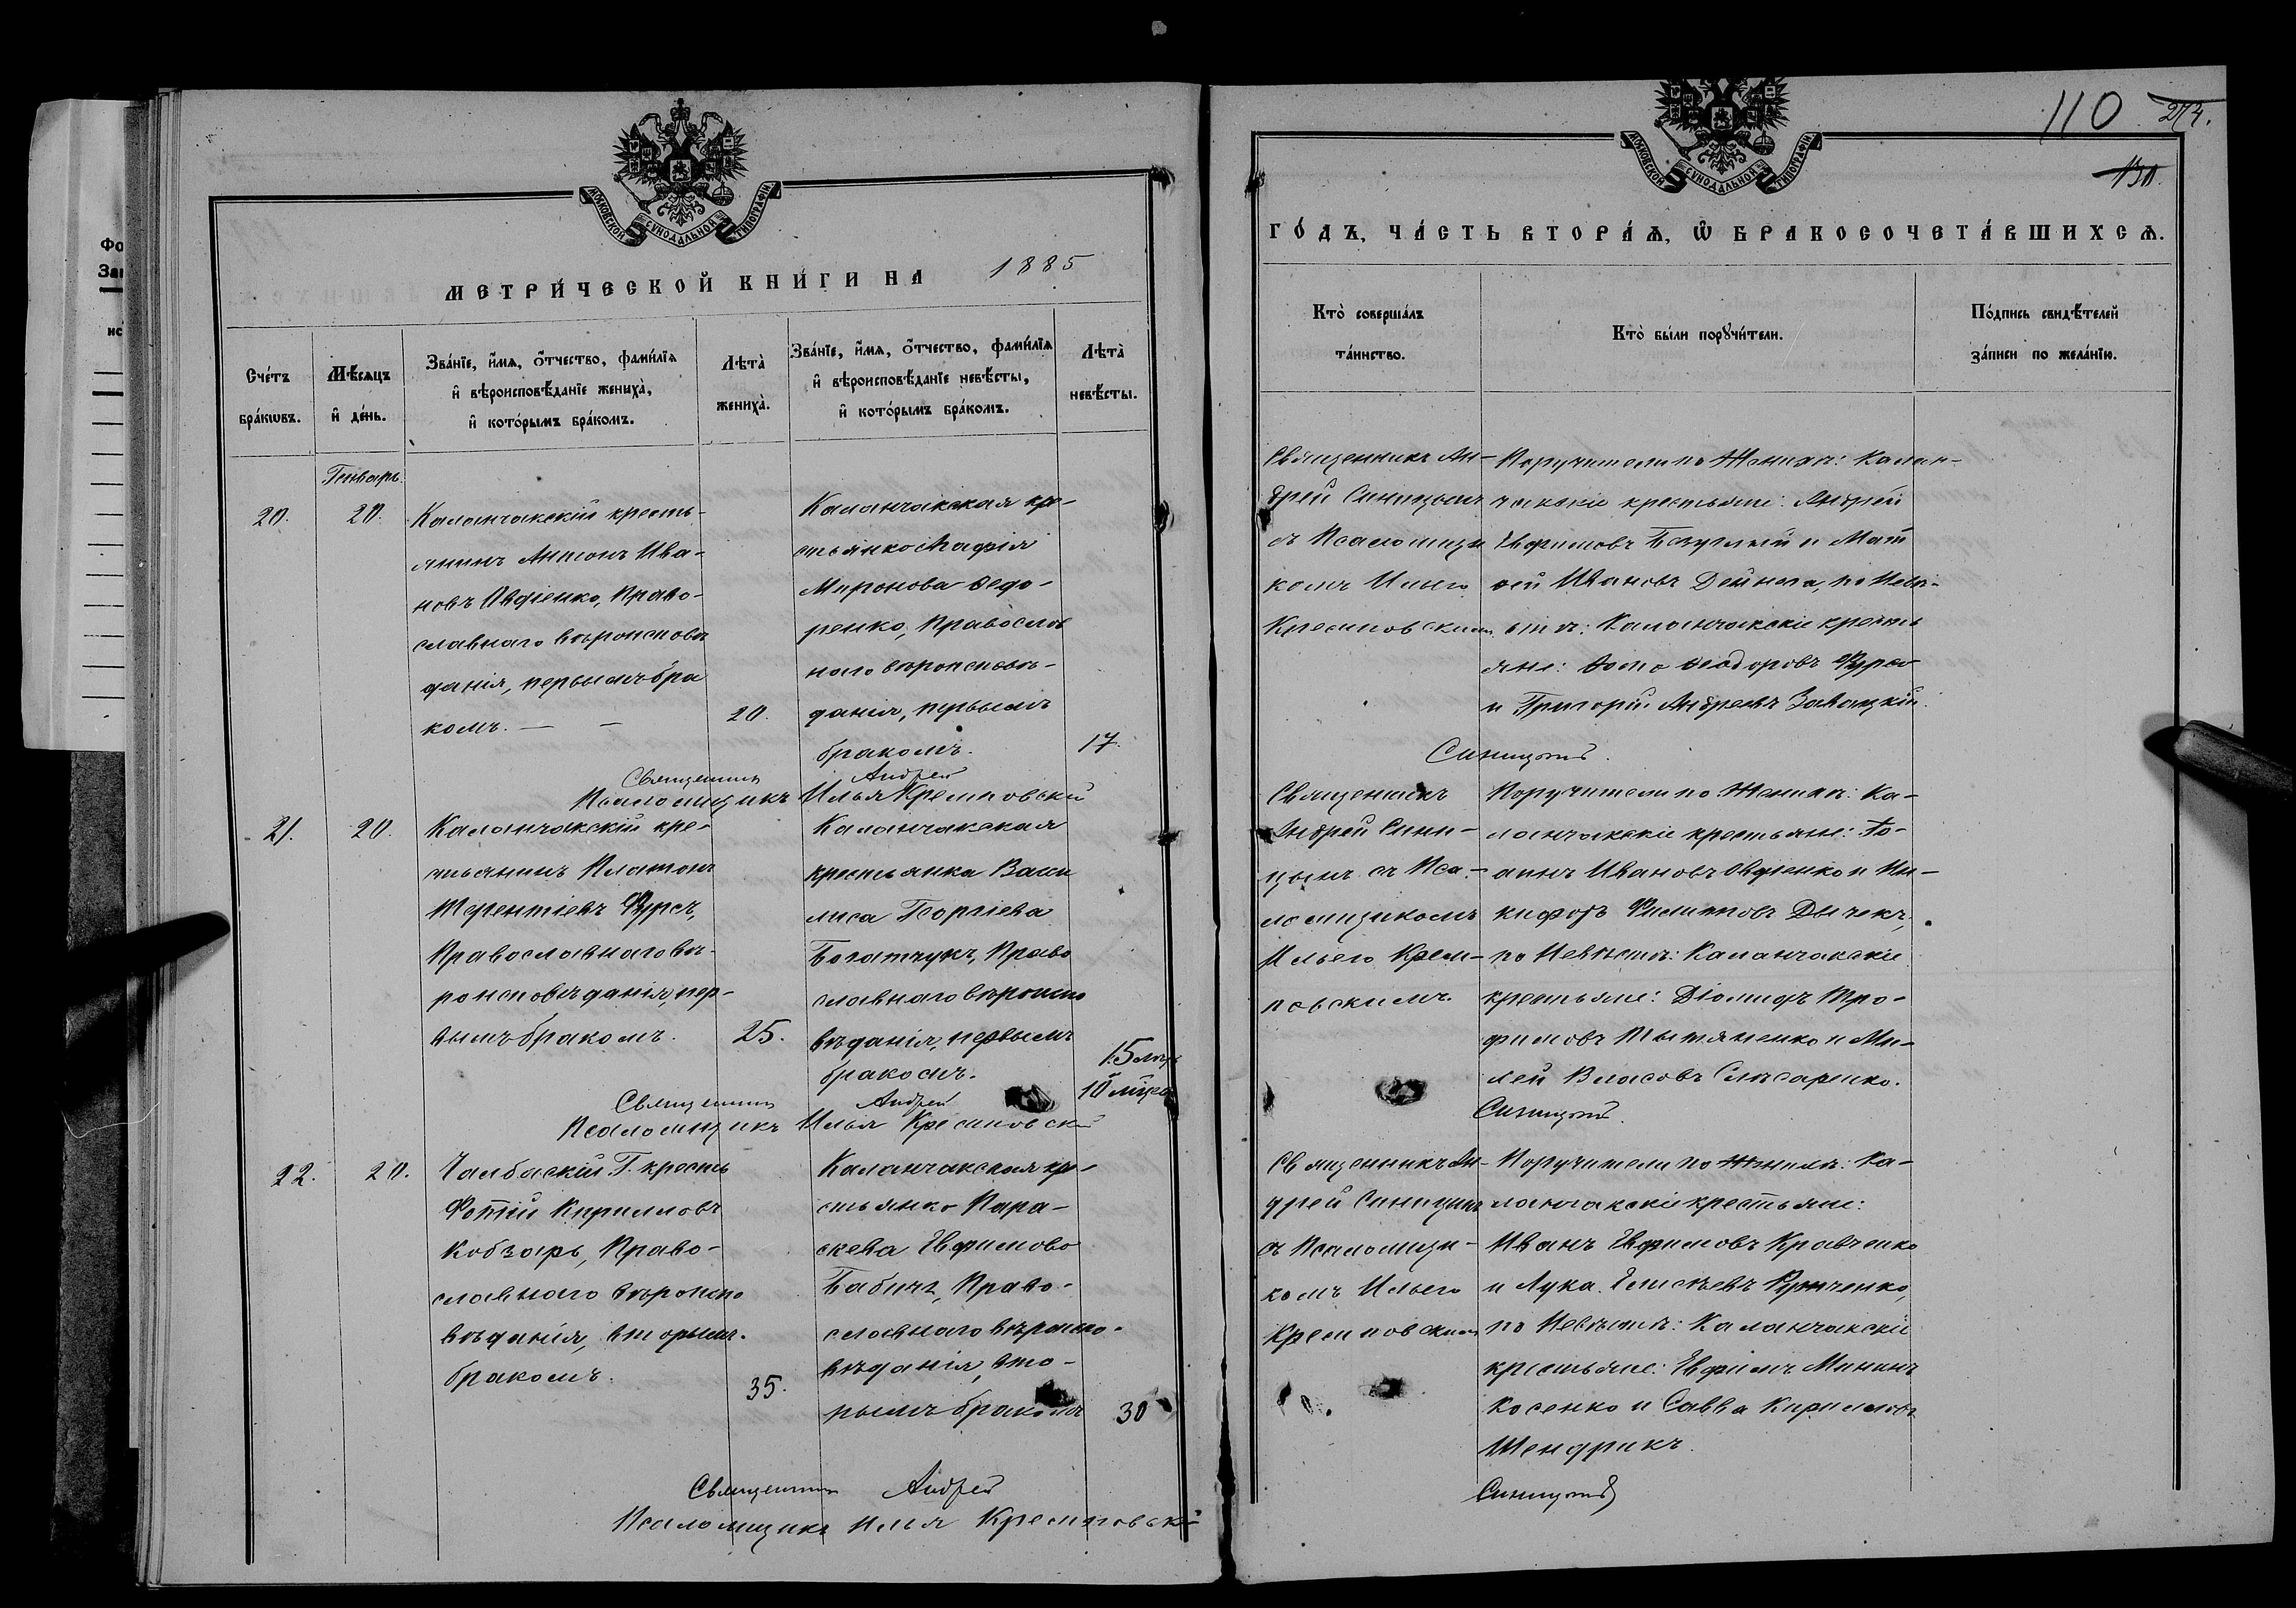 МОСКОВСКОЙ СѴНОДАЛЬНОЙ ТИПОГРАФІИ
МЕТРИ́ЧЕСКОЙ КНИ́ГИ НА 1885
Сче́тъ бра́кѡвъ.
Мѣ́сѧцъ и҆ де́нь.
Зва́нїе, и҆́мѧ, ѻ҆́тчество, фамѝлїѧ
и҆ вѣроисповѣ́данїе жениха̀,
и҆ кото́рымъ бра́комъ.
Лѣта̀
жениха̀.
Зва́нїе, и҆́мѧ, ѻ҆́тчество, фамѝлїѧ
и҆ вѣроисповѣ́данїе невѣ́сты,
и҆ кото́рымъ бра́комъ.
Лѣта̀
невѣ́сты.
Январь.
20.
20.
Каланчакскій кресть-
янинъ Антонъ Ива-
новъ Овдіенко, Право-
славнаго вѣроисповѣ
данія, первымъ бра
комъ. — —
20.
Каланчакская кре-
стьянка Агафія
Миронова Федо-
ренко, Православ
наго вѣроисповѣ-
данія, первымъ
бракомъ.
17.
Священникъ Андрей
Псаломщикъ Илья Кремповскій
21.
20.
Каланчакскій кре-
стьянинъ Платонъ
Терентіевъ Фурсъ,
Православнаго вѣ-
роисповѣданія, пер-
вымъ бракомъ.
25.
Каланчакская
крестьянка Васи
лиса Георгіева
Богатчукъ, Право
славнаго вѣроиспо
вѣданія, первымъ
бракомъ.
15 лѣтъ
10 мѣся
Священникъ Андрей
Псаломщикъ Илья Кремповскій
22.
20.
Чалбаскій Г. кресть
Фотій Кирилловъ
Кобзарь, Право-
славнаго вѣроиспо
вѣданія, вторымъ
бракомъ.
35.
Каланчакская кре-
стьянка Пара-
скева Евфимова
Бабичъ, Право-
славнаго вѣроиспо-
вѣданія, вто-
рымъ бракомъ
30
Священникъ Андрей
Псаломщикъ Илья Кремповскій
110
274.
130.
МОСКОВСКОЙ СѴНОДАЛЬНОЙ ТИПОГРАФІИ
ГО́ДЪ, ЧА́СТЬ ВТОРА́Ѧ, Ѡ҆ БРАКОСОЧЕТА́ВШИХСѦ.
Кто̀ соверша́лъ
та́инство.
Кто̀ бы́ли порꙋчи́тели.
По́дпись свидѣ́телей
за́писи по жела́нїю.
Священникъ Ан-
дрей Синицынъ
съ Псаломщи
комъ Ильею
Кремповскимъ
Поручители по Женихѣ: Калан-
чакскіе крестьяне: Андрей
Евфимовъ Безуглый и Мат
вей Ивановъ Дейнега, по Невѣ-
стѣ: Каланчакскіе кресть
яне: Фома Феодоровъ Фурса
и Григорій Андреевъ Завацкій.
Синицынъ.
Священникъ
Андрей Сини-
цынъ съ Пса-
ломщикомъ
Ильею Крем-
повскимъ.
Поручители по Женихѣ: Ка-
ланчакскіе крестьяне: Іо-
аннъ Ивановъ Овдіенко и Ни-
кифоръ Филипповъ Дычекъ,
по Невѣстѣ: Каланчакскіе
крестьяне: Діомидъ Тро-
фимовъ Тытяненко и Ми-
лей Власовъ Слѣсаренко.
Синицынъ.
Священникъ Ан-
дрей Синицынъ
съ Псаломщи-
комъ Ильею
Кремповскимъ
Поручители по Женихѣ: Ка-
ланчакскіе крестьяне:
Иванъ Евфимовъ Кравченко
и Лука Елисѣевъ
по Невѣстѣ: Каланчакскіе
крестьяне: Евфимъ Мининъ
Косенко и Савва Кирилловъ
Шендрикъ.
Синицынъ